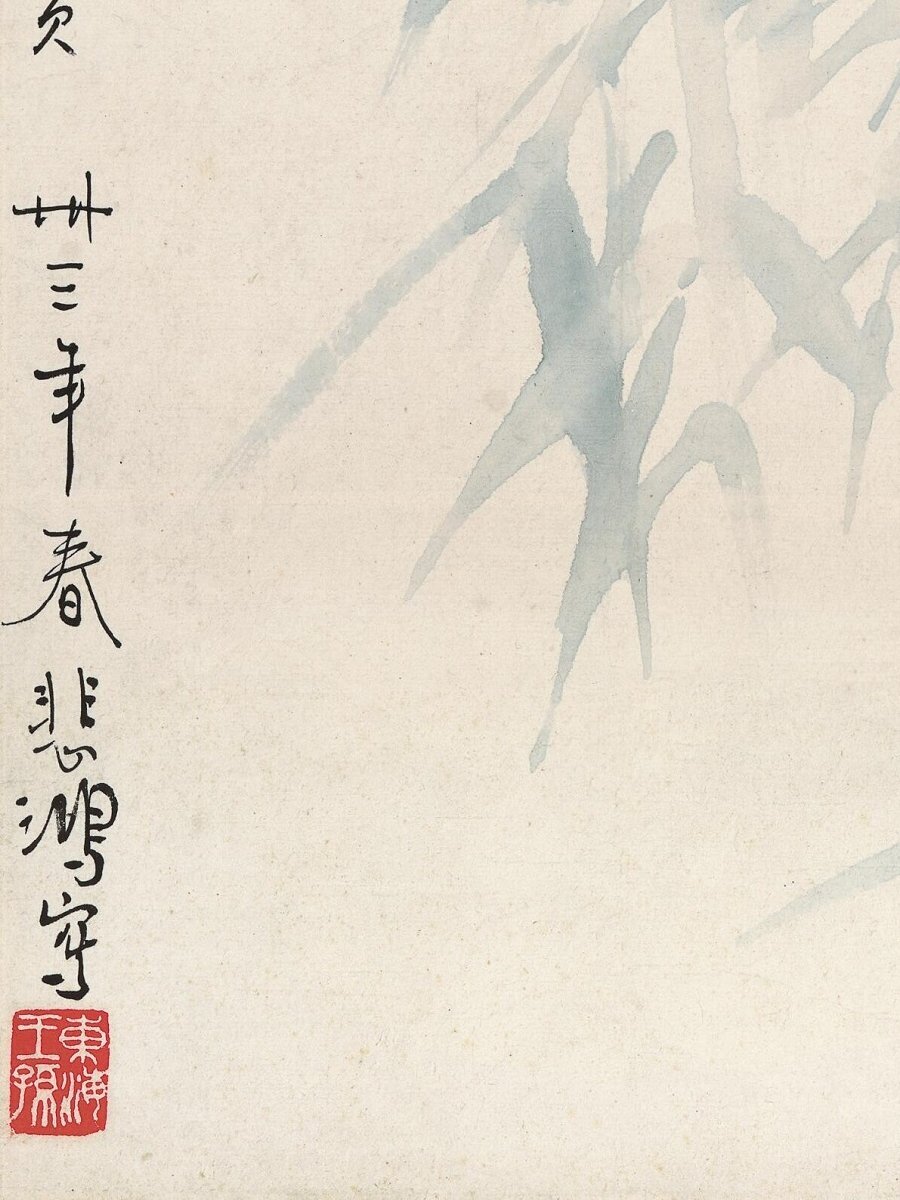 卅三年春悲鴻寫
東海王孫